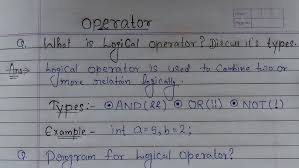 Operator
Q. What is Logical operator? Discus it's types.
Ans→ Logical operator is used to combine two or
more relation logically.
Types:- ⊙ AND(&&) ⊙ OR(||) ⊙ NOT(!)
Example - int a=5, b=2;
Q Program for Logical Operator?